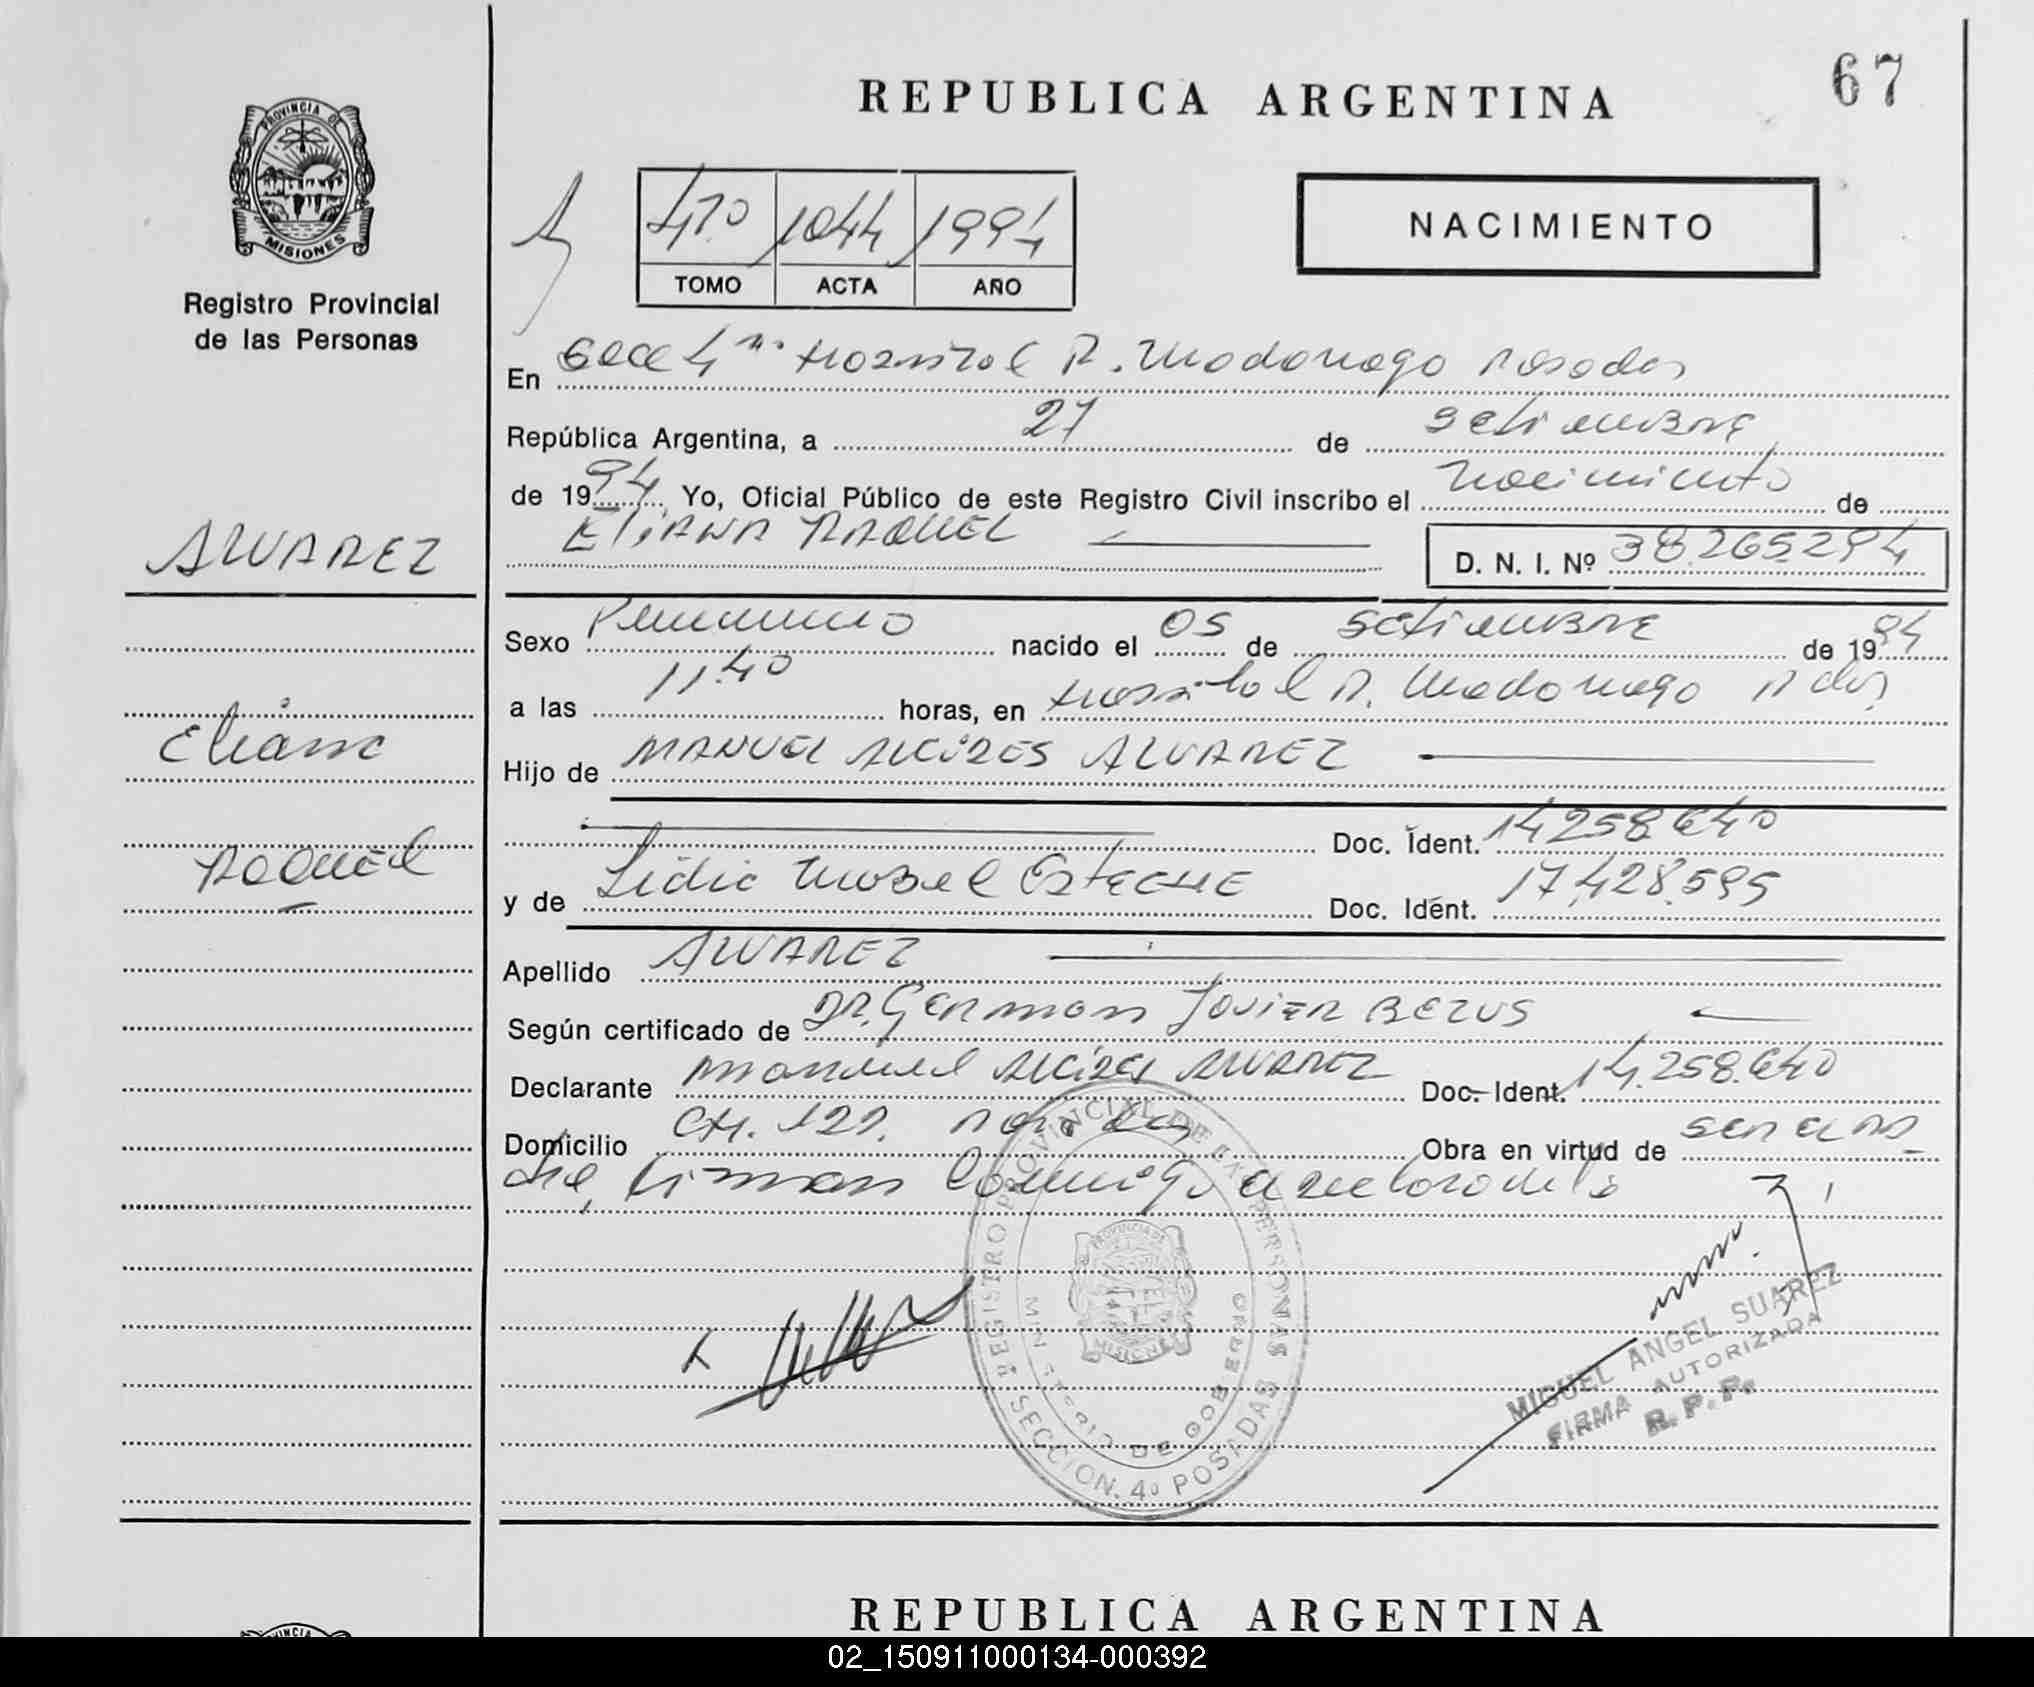 67
REPUBLICA ARGENTINA
PROVINCIA DE
MISIONES
Registro Provincial
de las Personas
4to 1044 1994
TOMO ACTA AÑO
NACIMIENTO
En Secc 4ta Hospital R. Madariaga Posadas
República Argentina, a 27 de setiembre
de 1994 Yo, Oficial Público de este Registro Civil inscribo el nacimiento de
ELIANA RAQUEL
D. N. I. Nº 38.265.294
ALVAREZ
Eliana
Raquel
Sexo Femenino nacido el 05 de setiembre de 1994
a las 11.40 horas, en Hospital R. Madariaga Pdas
Hijo de MANUEL ALCIDES ALVAREZ
Doc. Ident. 14258640
y de Lidia Mabel Esteche Doc. Ident. 17.428.595
Apellido ALVAREZ
Según certificado de DR. German Javier BEZUS
Declarante Manuel Alcides ALVAREZ Doc. Ident. 14.258.640
Domicilio CH. 122. Posadas Obra en virtud de ser el pa
dre, firman conmigo
REGISTRO PROVINCIAL DE LAS PERSONAS
MINISTERIO DE GOBIERNO
PROVINCIA DE
MISIONES
SECCION. 4a POSADAS
MIGUEL ANGEL SUAREZ
FIRMA AUTORIZADA
R. P. P.
REPUBLICA ARGENTINA
02_150911000134-000392